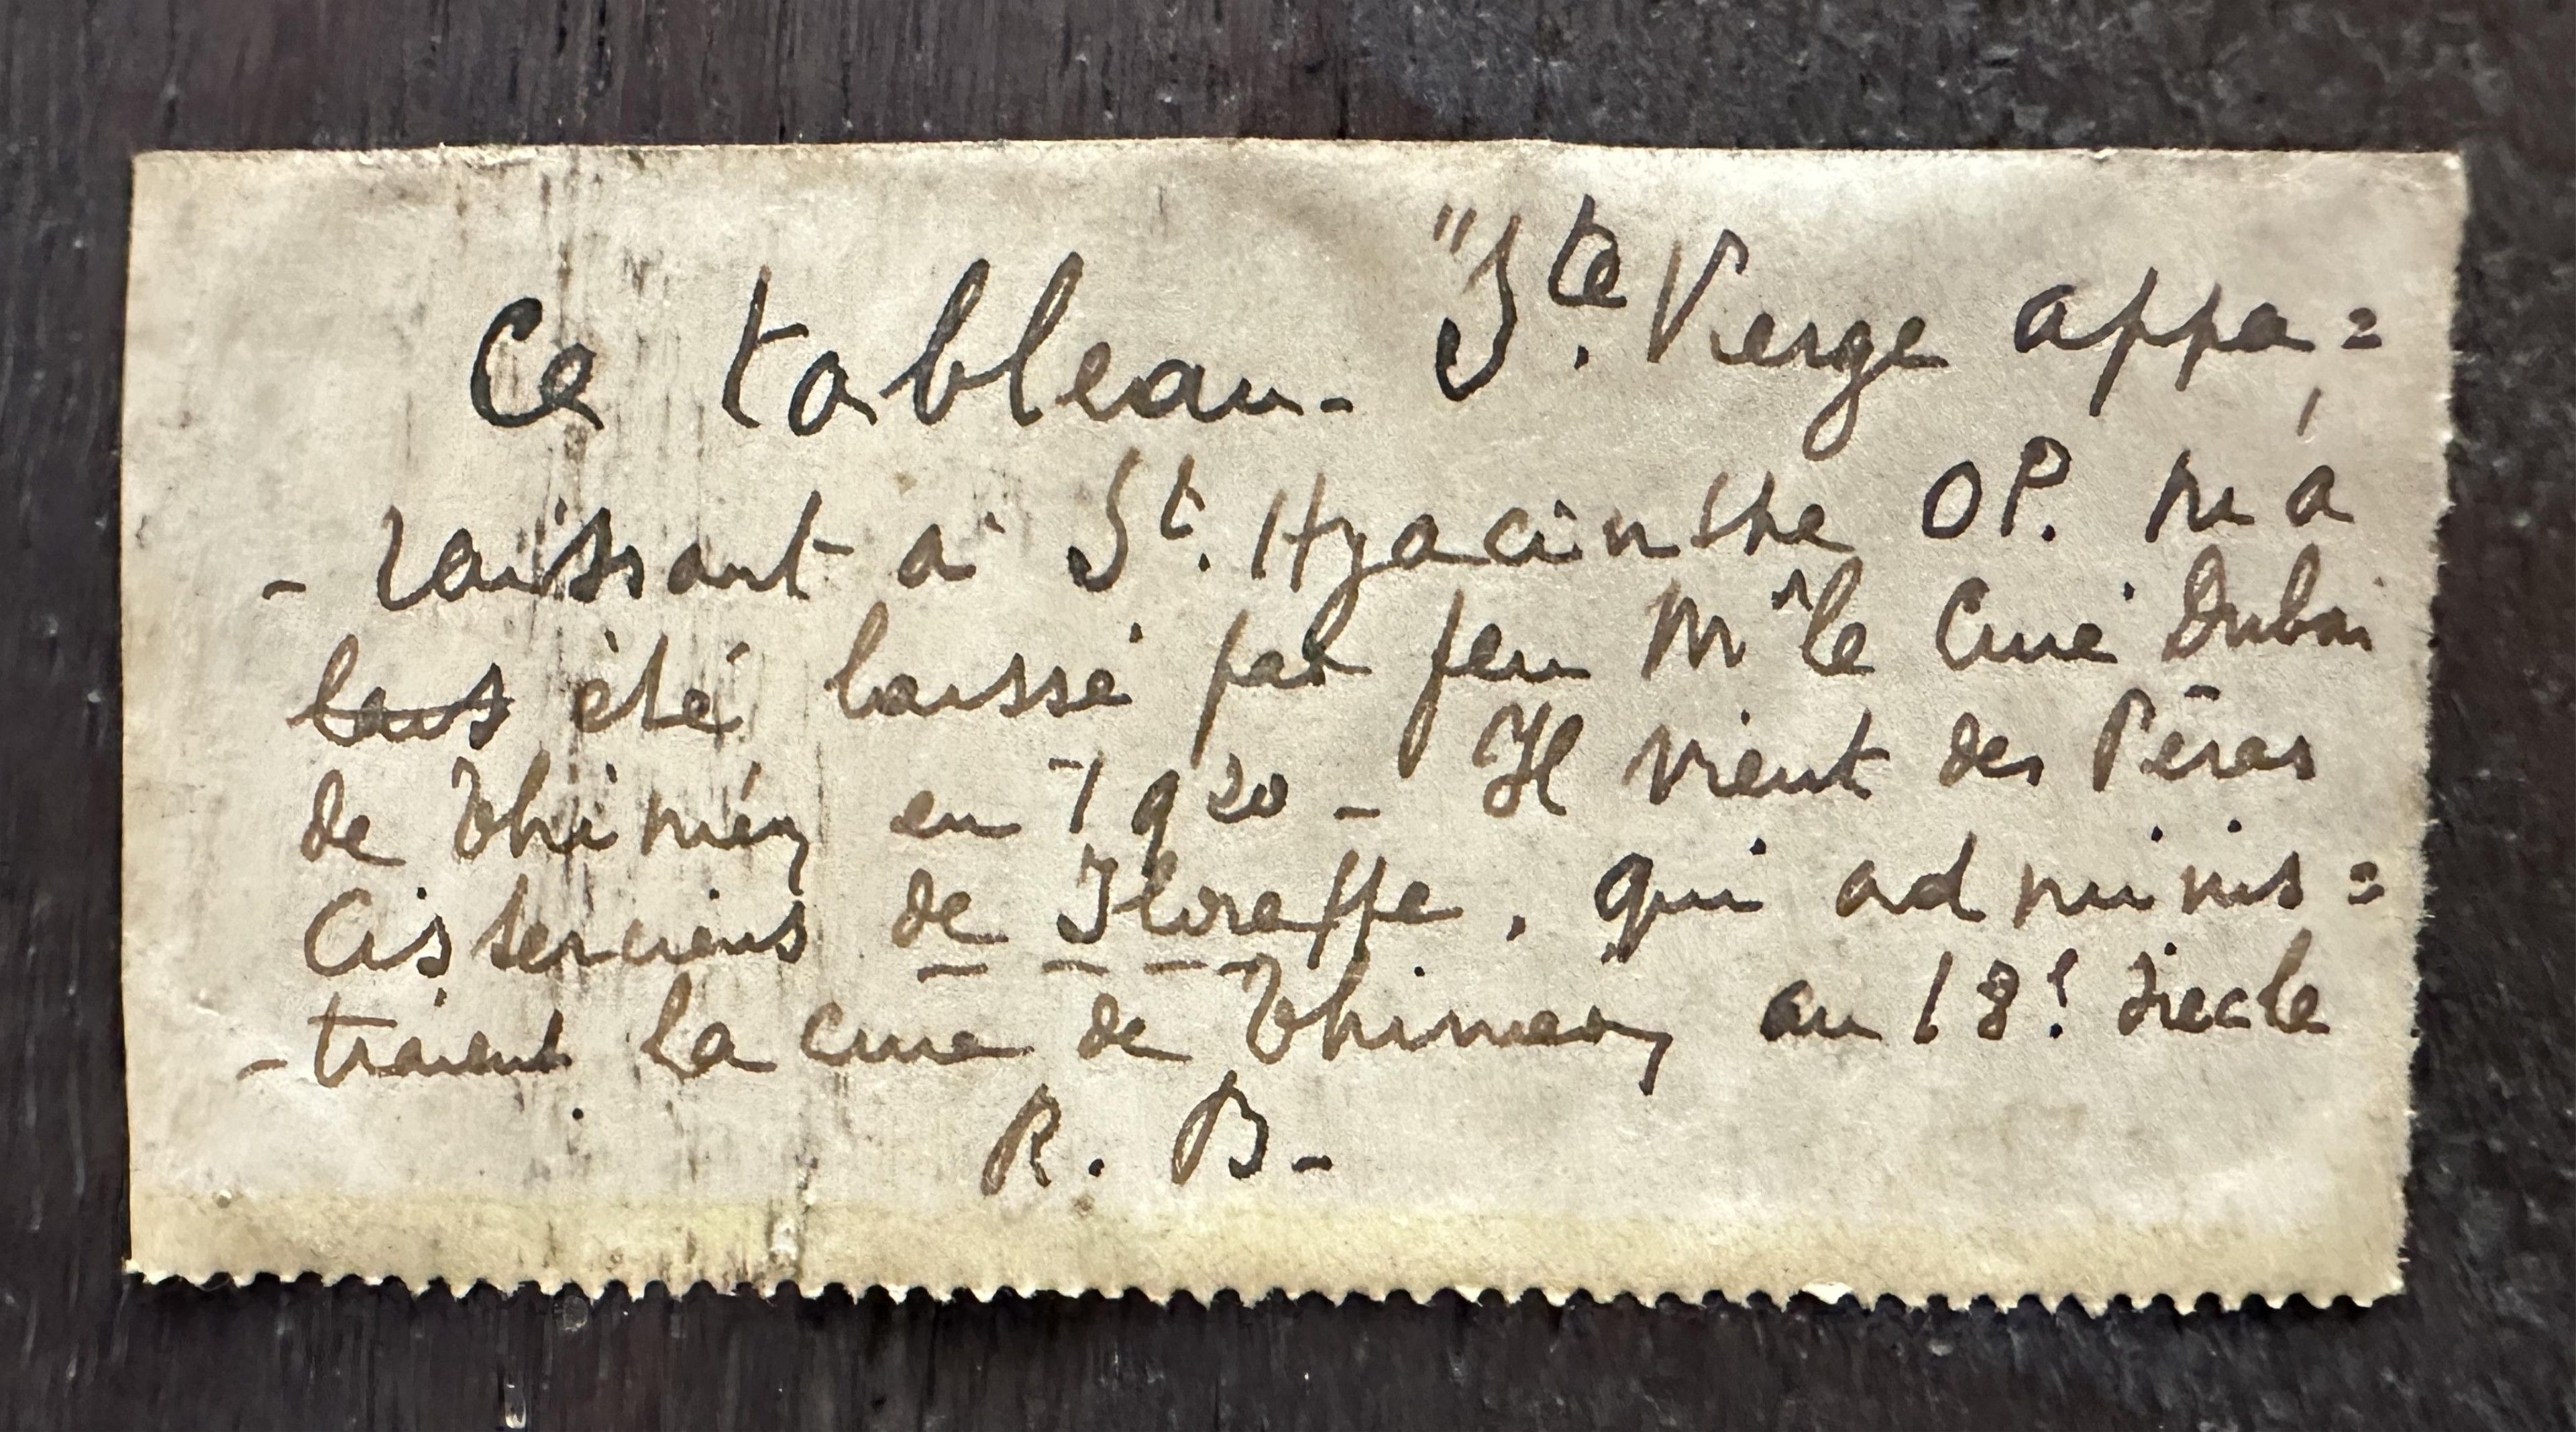 Ce tableau - "Ste. Vierge appa=
- raissant à St. Hyacinthe OP. m'a
laus été laissé par feu Mr le Curé Dubois
de Thiméy en 1920 - Il vient des Pères
Cisterciens de Floreffe, qui adminis=
- traient la cure de Thiméon au 18e siècle
R. B-